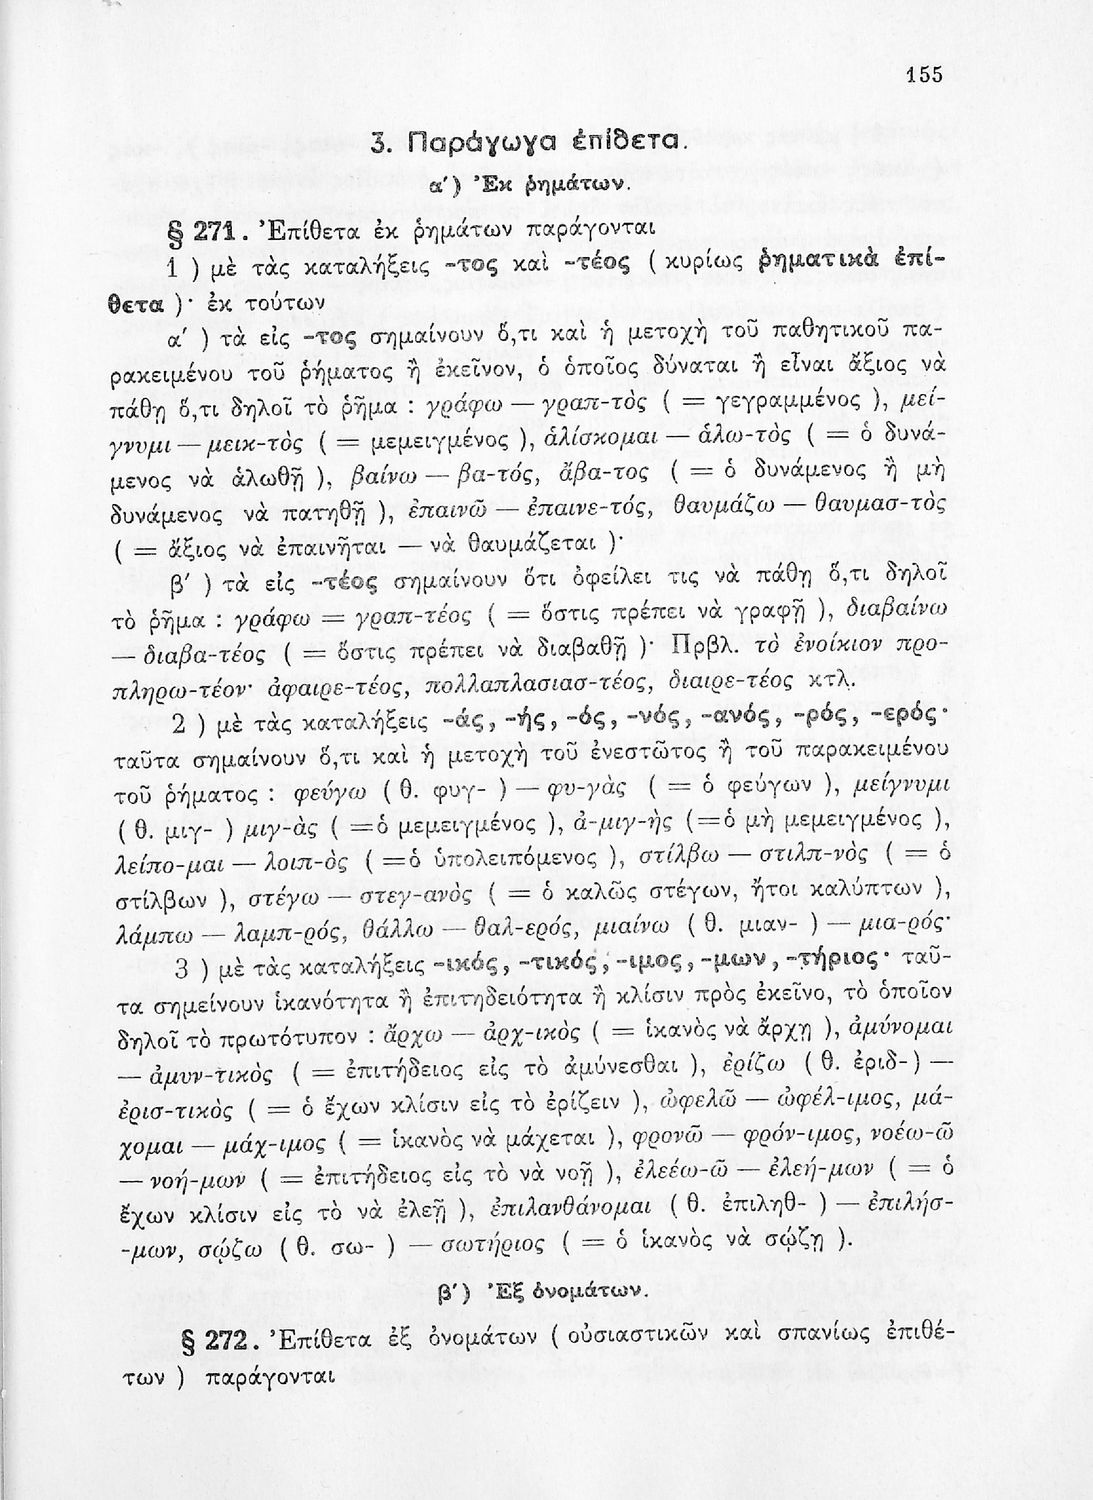 155
3. Παράγωγα ἐπίθετα.
α′) Ἐκ ῥημάτων.
§ 271. Ἐπίθετα ἐκ ῥημάτων παράγονται
1 ) μὲ τὰς καταλήξεις -τος καὶ -τέος ( κυρίως ῥηματικὰ ἐπί-
θετα )· ἐκ τούτων
α′ ) τὰ εἰς -τος σημαίνουν ὅ,τι καὶ ἡ μετοχὴ τοῦ παθητικοῦ πα-
ρακειμένου τοῦ ῥήματος ἢ ἐκεῖνον, ὁ ὁποῖος δύναται ἢ εἶναι ἄξιος νὰ
πάθῃ ὅ,τι δηλοῖ τὸ ῥῆμα : γράφω — γραπ-τὸς ( = γεγραμμένος ), μεί-
γνυμι — μεικ-τὸς ( = μεμειγμένος ), ἁλίσκομαι — ἁλω-τὸς ( = ὁ δυνά-
μενος νὰ ἁλωθῇ ), βαίνω — βα-τός, ἄβα-τος ( = ὁ δυνάμενος ἢ μὴ
δυνάμενος νὰ πατηθῇ ), ἐπαινῶ — ἐπαινε-τός, θαυμάζω — θαυμασ-τὸς
( = ἄξιος νὰ ἐπαινῆται — νὰ θαυμάζεται )·
β′ ) τὰ εἰς -τέος σημαίνουν ὅτι ὀφείλει τις νὰ πάθῃ ὅ,τι δηλοῖ
τὸ ῥῆμα : γράφω = γραπ-τέος ( = ὅστις πρέπει νὰ γραφῇ ), διαβαίνω
— διαβα-τέος ( = ὅστις πρέπει νὰ διαβαθῇ )· Πρβλ. τὸ ἐνοίκιον προ-
πληρω-τέον· ἀφαιρε-τέος, πολλαπλασιασ-τέος, διαιρε-τέος κτλ.
2 ) μὲ τὰς καταλήξεις -άς, -ής, -ός, -νός, -ανός, -ρός, -ερός·
ταῦτα σημαίνουν ὅ,τι καὶ ἡ μετοχὴ τοῦ ἐνεστῶτος ἢ τοῦ παρακειμένου
τοῦ ῥήματος : φεύγω ( θ. φυγ- ) — φυ-γὰς ( = ὁ φεύγων ), μείγνυμι
( θ. μιγ- ) μιγ-ὰς ( =ὁ μεμειγμένος ), ἀ-μιγ-ὴς (=ὁ μὴ μεμειγμένος ),
λείπο-μαι — λοιπ-ὸς ( =ὁ ὑπολειπόμενος ), στίλβω — στιλπ-νὸς ( = ὁ
στίλβων ), στέγω — στεγ-ανὸς ( = ὁ καλῶς στέγων, ἤτοι καλύπτων ),
λάμπω — λαμπ-ρός, θάλλω — θαλ-ερός, μιαίνω ( θ. μιαν- ) — μια-ρός·
3 ) μὲ τὰς καταλήξεις -ικός, -τικός, -ιμος, -μων, -τήριος· ταῦ-
τα σημείνουν ἱκανότητα ἢ ἐπιτηδειότητα ἢ κλίσιν πρὸς ἐκεῖνο, τὸ ὁποῖον
δηλοῖ τὸ πρωτότυπον : ἄρχω — ἀρχ-ικὸς ( = ἱκανὸς νὰ ἄρχῃ ), ἀμύνομαι
— ἀμυν-τικὸς ( = ἐπιτήδειος εἰς τὸ ἀμύνεσθαι ), ἐρίζω ( θ. ἐριδ-) —
ἐρισ-τικὸς ( = ὁ ἔχων κλίσιν εἰς τὸ ἐρίζειν ), ὠφελῶ — ὠφέλ-ιμος, μά-
χομαι — μάχ-ιμος ( = ἱκανὸς νὰ μάχεται ), φρονῶ — φρόν-ιμος, νοέω-ῶ
— νοή-μων ( = ἐπιτήδειος εἰς τὸ νὰ νοῇ ), ἐλεέω-ῶ — ἐλεή-μων ( = ὁ
ἔχων κλίσιν εἰς τὸ νὰ ἐλεῇ ), ἐπιλανθάνομαι ( θ. ἐπιληθ- ) — ἐπιλήσ-
-μων, σῴζω ( θ. σω- ) — σωτήριος ( = ὁ ἱκανὸς νὰ σῴζῃ ).
β′) Ἐξ ὀνομάτων.
§ 272. Ἐπίθετα ἐξ ὀνομάτων ( οὐσιαστικῶν καὶ σπανίως ἐπιθέ-
των ) παράγονται